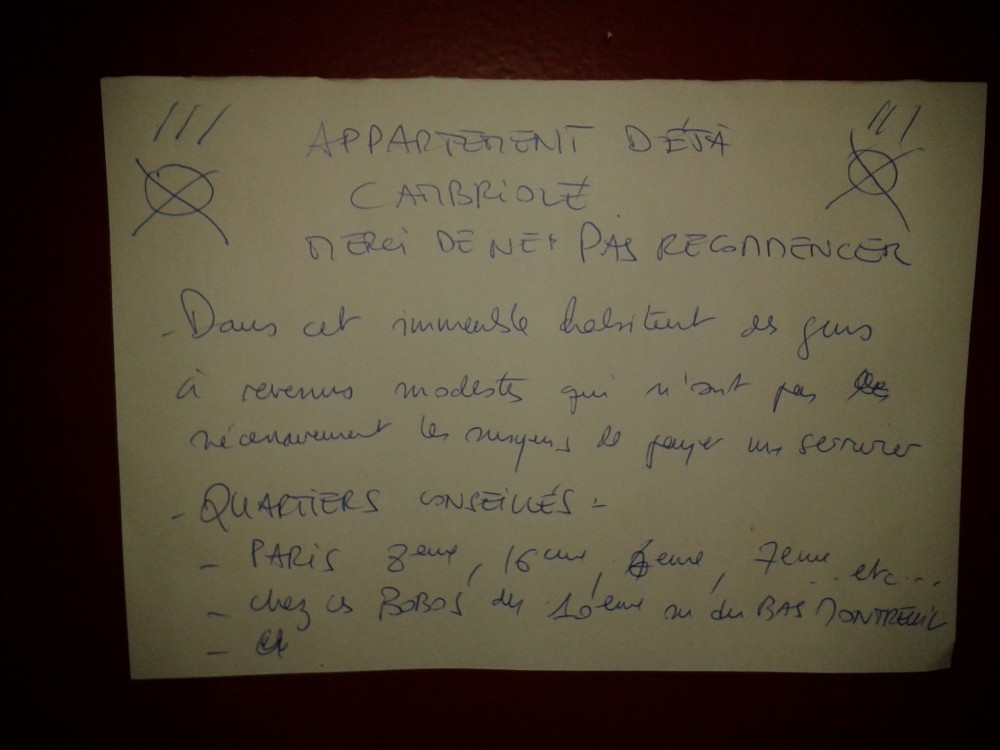 APPARTEMENT DÉJÀ
CAMBRIOLÉ
MERCI DE NE PAS RECOMMENCER
- Dans cet immeuble habitent des gens
à revenus modestes qui n'ont pas
nécessairement les moyens de payer un serrurier
- QUARTIERS CONSEILLÉS :
- PARIS 8eme, 16eme, 6eme, 7eme ...etc...
- chez les BOBOS du 10eme ou du BAS MONTREUIL
-